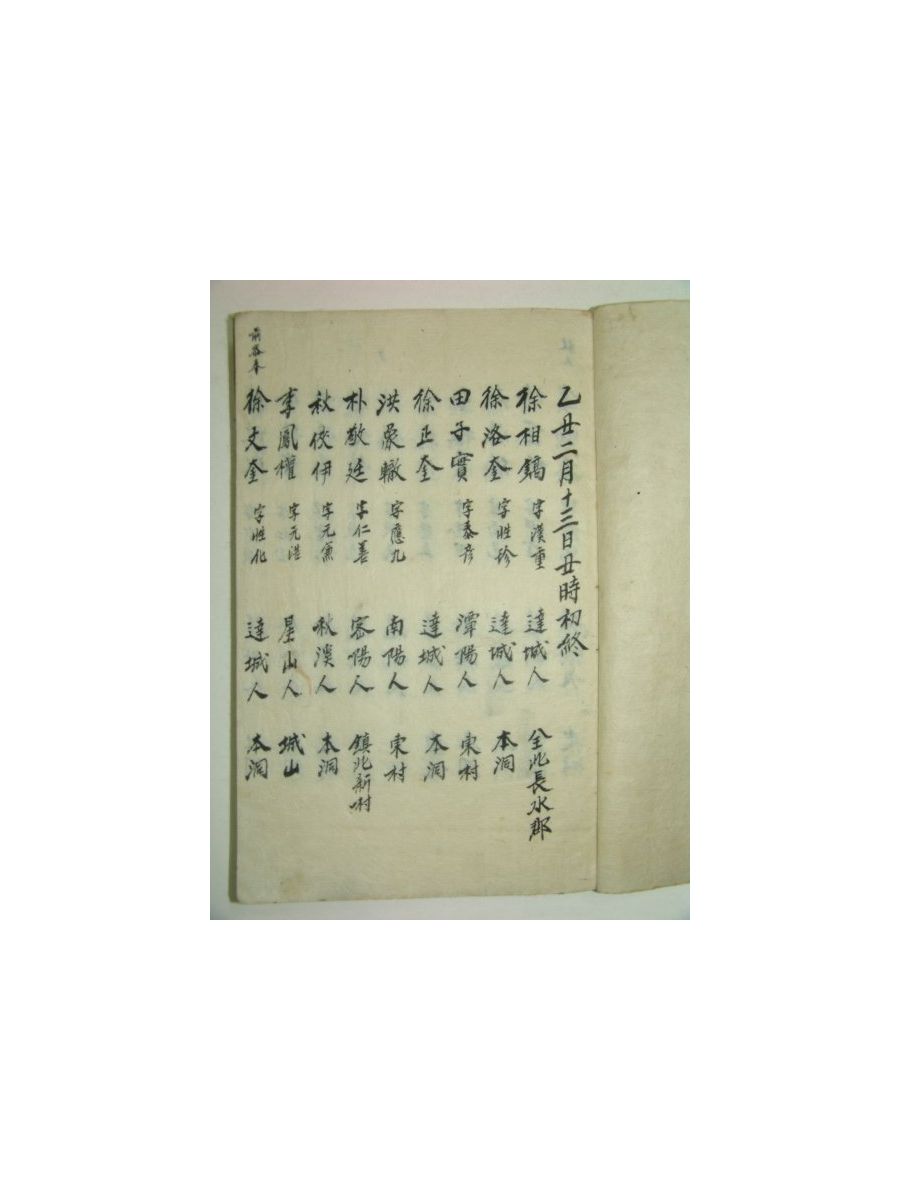 乙丑二月十三日丑時初終
徐相鎬 字漢重 達城人 全北長水郡
徐洛奎 字性珍 達城人 本洞
田子實 字泰彦 潭陽人 東村
徐正奎 達城人 本洞
洪象轍 字應九 南陽人 東村
朴敬廷 字仁善 密陽人 鎮北新村
秋俊伊 字元兼 秋溪人 本洞
李鳳權 字元浩 星山人 城山
徐丈奎 字性化 達城人 本洞